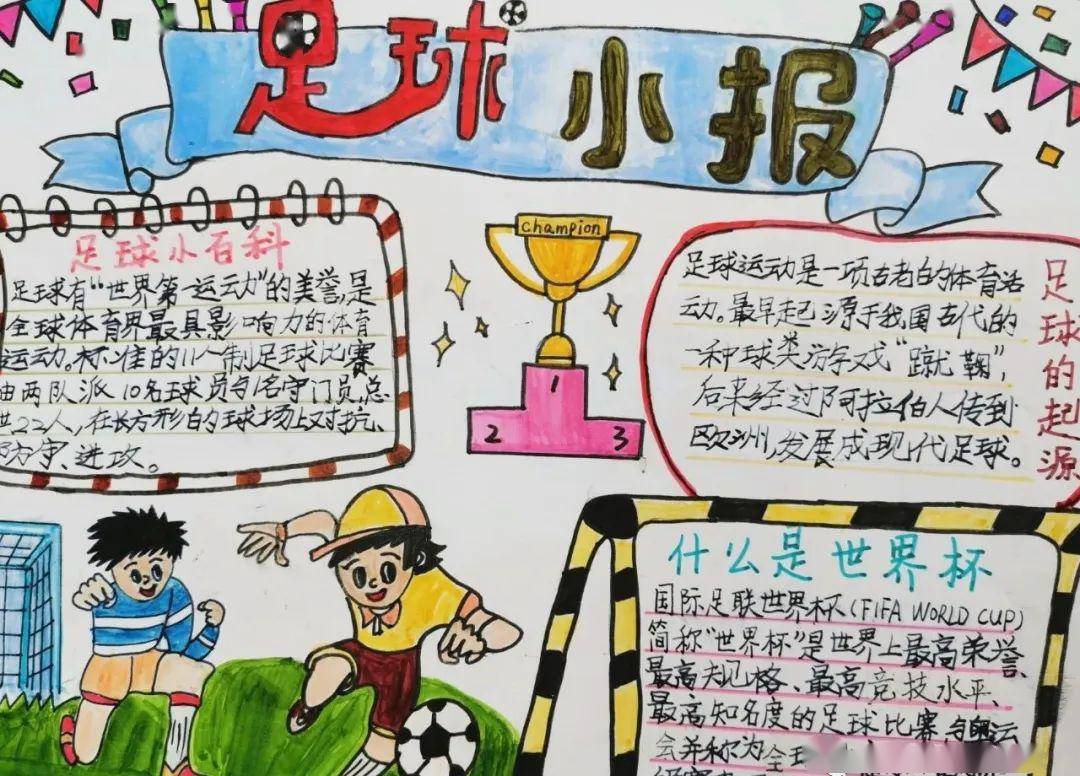 足球小报
足球小百科
足球有“世界第一运动”的美誉,是
全球体育界最具影响力的体育
运动。标准的11人制足球比赛
由两队派10名球员与1名守门员,总
共22人,在长方形的球场上对抗、
防守、进攻。
champion
1
2
3
足球的起源
足球运动是一项古老的体育活
动。最早起源于我国古代的
一种球类游戏“蹴鞠”,
后来经过阿拉伯人传到
欧洲,发展成现代足球。
什么是世界杯
国际足联世界杯(FIFA WORLD CUP)
简称“世界杯”是世界上最高荣誉、
最高规格、最高竞技水平、
最高知名度的足球比赛,与奥运
会并称为全